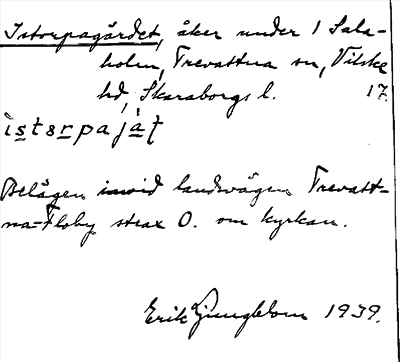 Istorpagärdet, åker under 1 Sala-
holm, Trevattna sn, Vilske
hd, Skaraborgs l. 17.
istɛrpajàt
Belägen invid landsvägen Trevatt-
na-Floby strax O. om kyrkan.
Erik Ljungblom 1939.